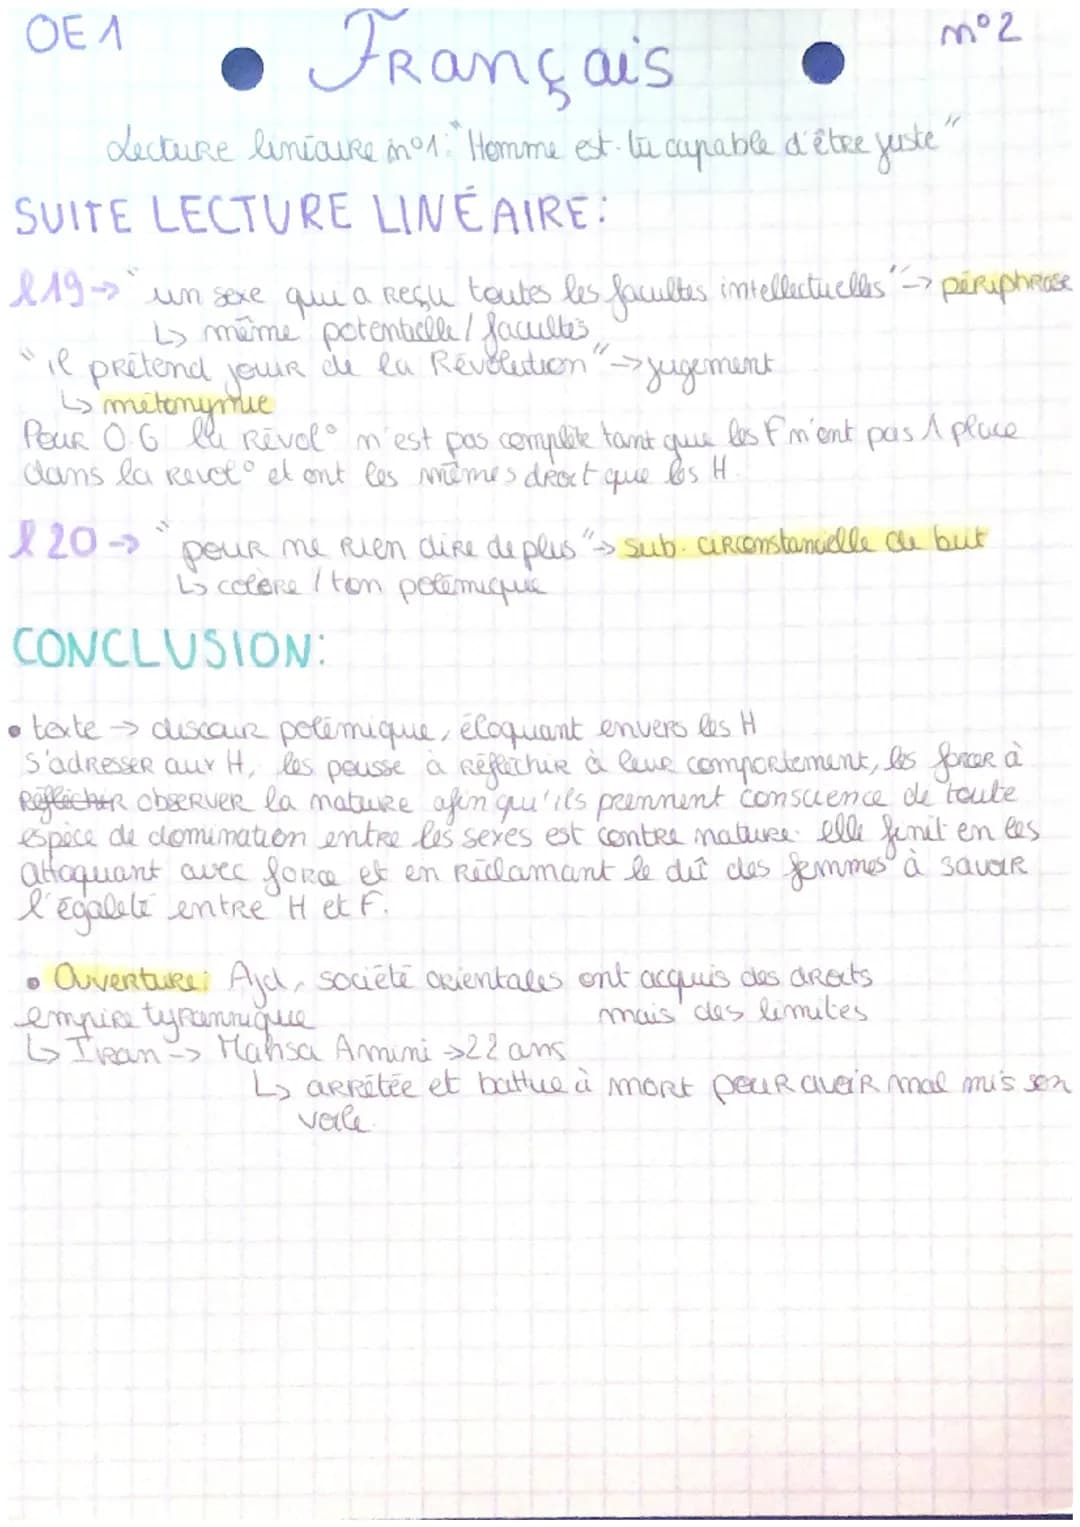 OE1
n°2
Français
Lecture linéaire n°1: "Homme est-tu capable d'être juste"
SUITE LECTURE LINÉAIRE:
l 19 → "un sexe qui a reçu toutes les facultés intellectuelles" → périphrase
↳ même potentielle / facultés
"il prétend jouir de la Révolution" → jugement
↳ métonymie
Pour O.G la Révol° n'est pas complète tant que les F n'ont pas 1 place
dans la Revol° et ont les mêmes droit que les H.
l 20 → "pour ne rien dire de plus" → sub. circonstancielle de but
↳ colère / ton polémique
CONCLUSION:
• texte → discour polémique, éloquant envers les H
S'adresser aux H, les pousse à réfléchir à leur comportement, les forcer à
Réfléchir observer la nature afin qu'ils prennent conscience de toute
espèce de domination entre les sexes est contre nature. elle finit en les
attaquant avec force et en réclamant le dû des femmes à savoir
l'égalité entre H et F.
• Ouverture: Ajd, société orientales ont acquis des droits
empire tyrannique mais des limites
↳ Iran → Mahsa Amini → 22 ans
↳ arrêtée et battue à mort pour avoir mal mis son
voile.